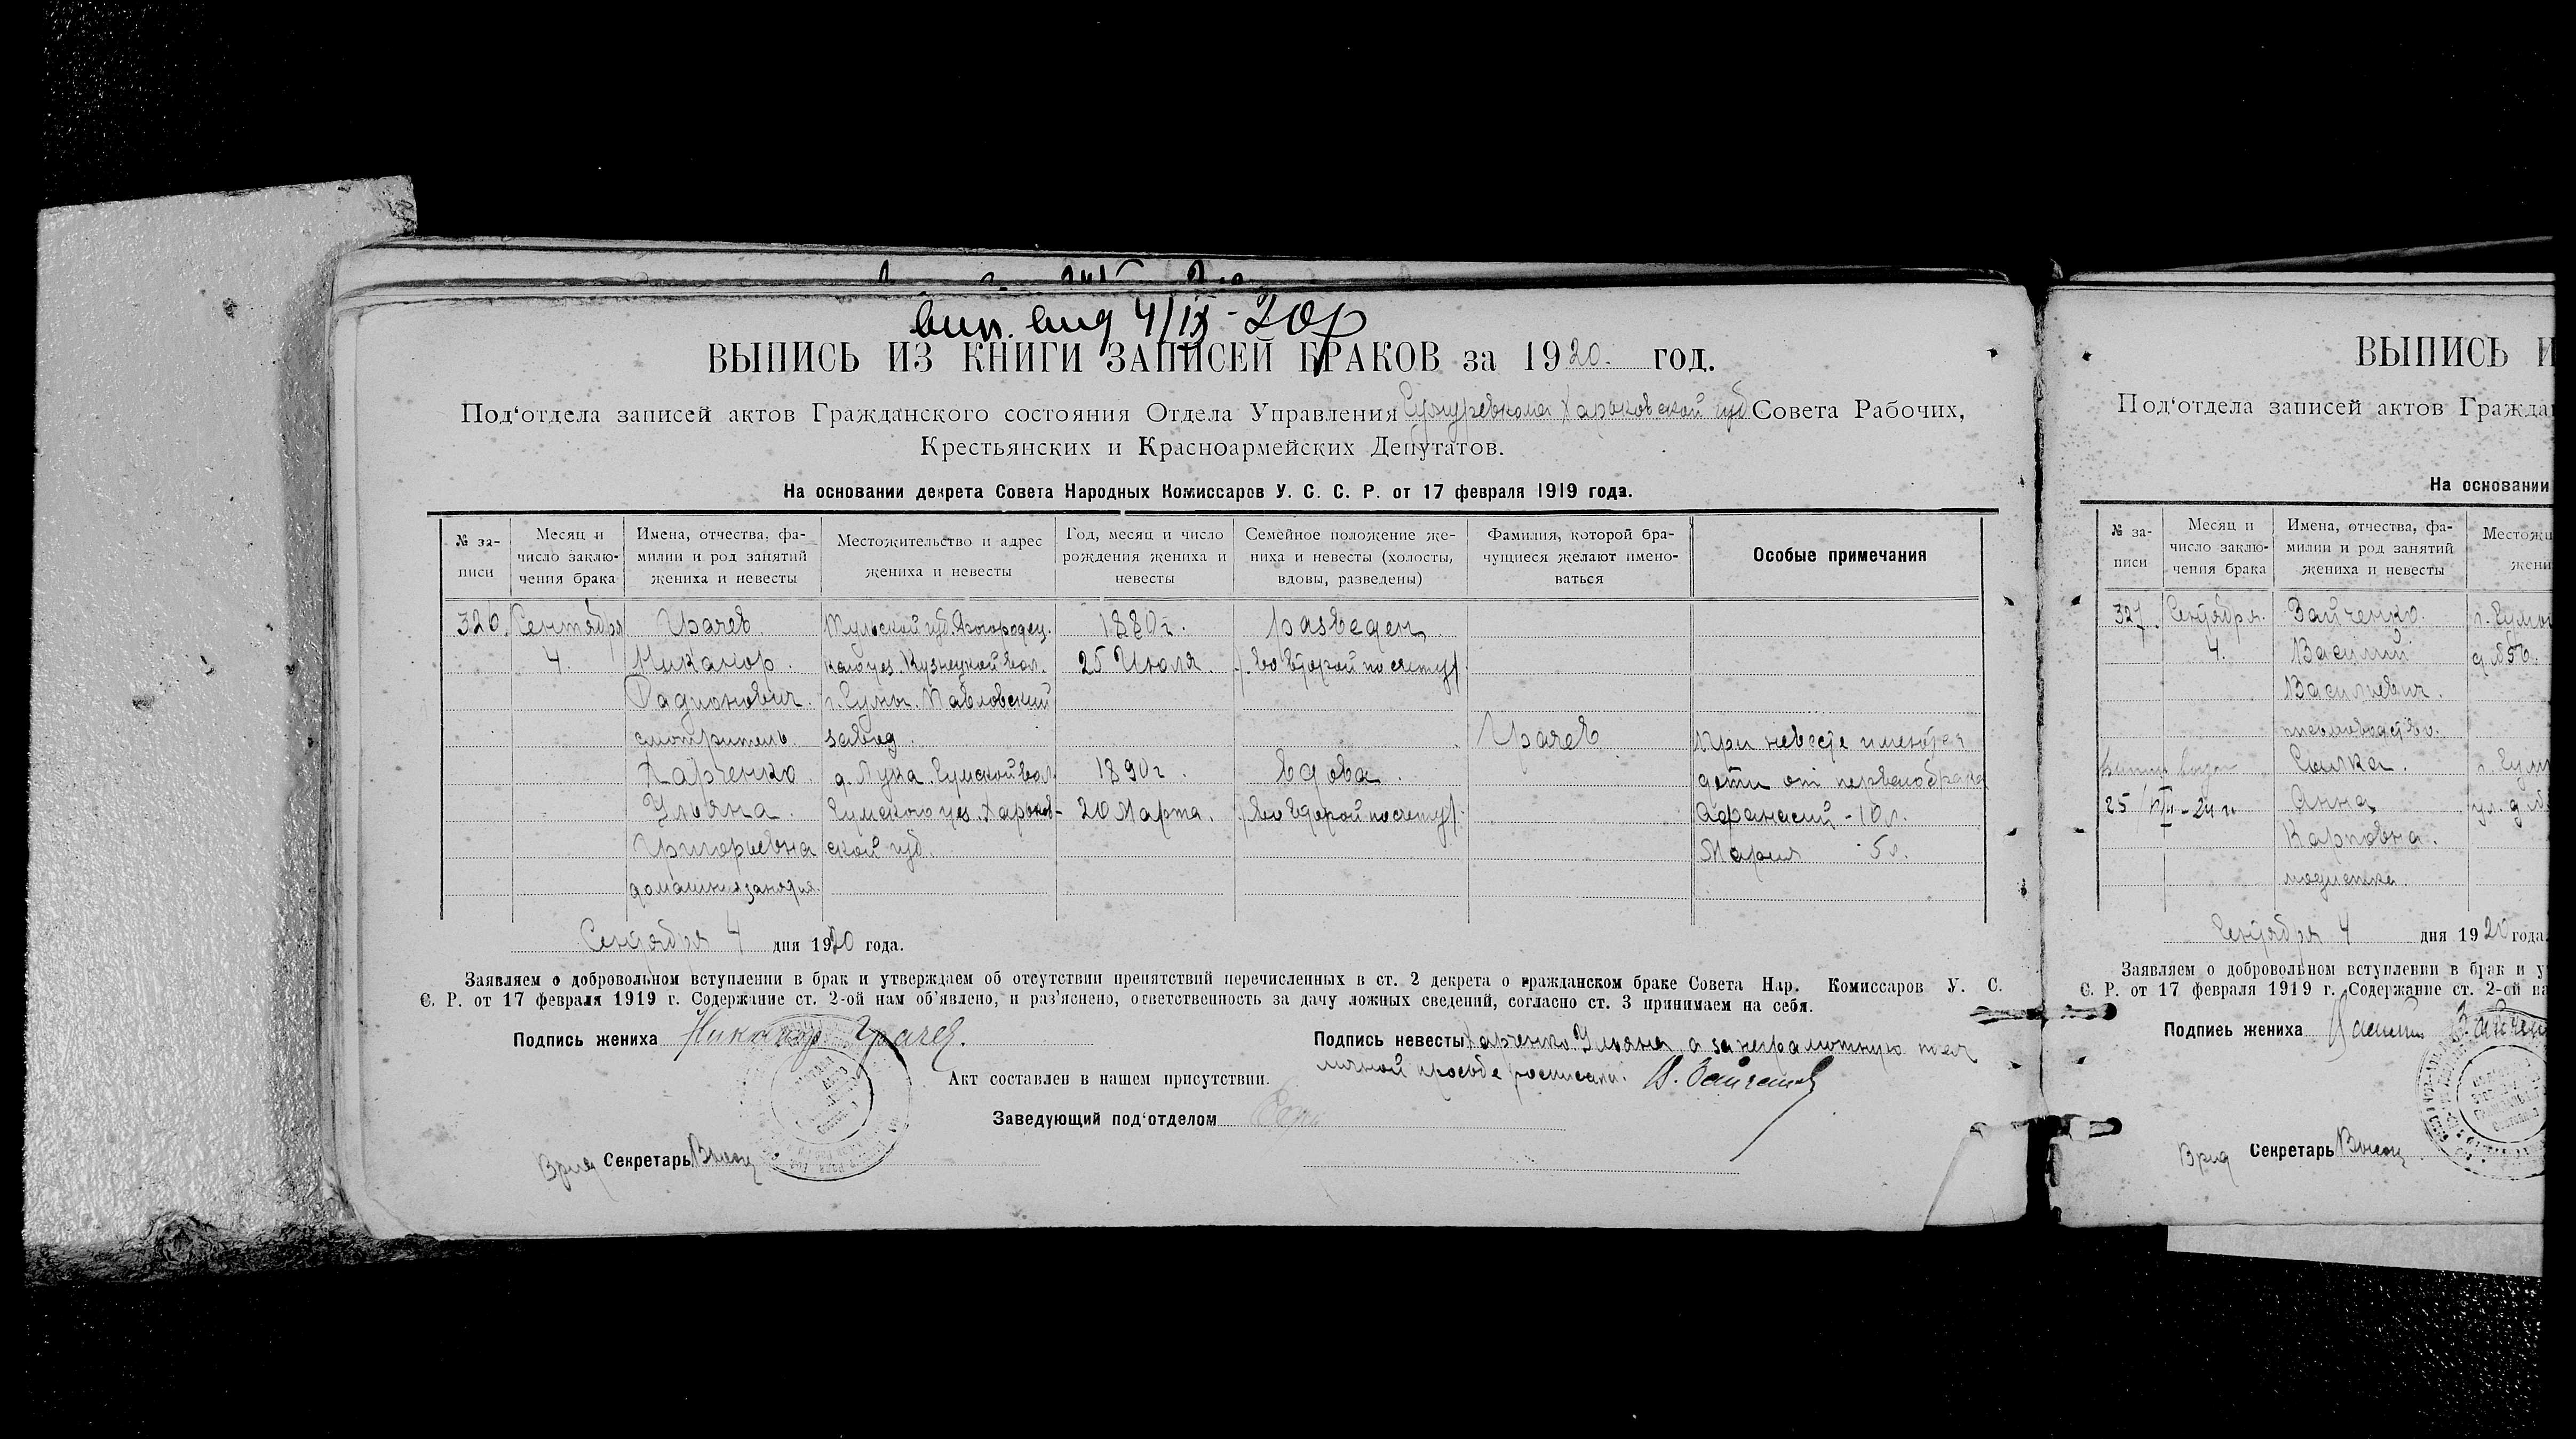 вип. вид 4/IX-20р
ВЫПИСЬ ИЗ КНИГИ ЗАПИСЕЙ БРАКОВ за 1920. год.
Под‘отдела записей актов Гражданского состояния Отдела Управления Сумуревкома Харьковской губ Совета Рабочих,
Крестьянских и Красноармейских Депутатов.
На основании декрета Совета Народных Комиссаров У. С. С. Р. от 17 февраля 1919 года.
№ за-
писи
Месяц и
число заклю-
чения брака
Имена, отчества, фа-
милии и род занятий
жениха и невесты
Местожительство и адрес
жениха и невесты
Год, месяц и число
рождения жениха и
невесты
Семейное положение же-
ниха и невесты (холосты,
вдовы, разведены)
Фамилия, которой бра-
чущиеся желают имено-
ваться
Особые примечания
326.
Сентября
4.
Грачев.
Никанор.
Радионович.
смотритель.
Харченко.
Ульяна.
Григорьевна
домашния занятия.
Тульской губ. Богородец.
каго уез. Кузнецкой вол.
г. Сумы. Павловский
завод.
д. Лука. Сумской вол.
Сумского уез. Харьков-
ской губ.
1880 г.
25 Июля.
1890 г.
20 Марта.
разведен.
/. во второй по счету/.
вдова.
/. во второй по счету/.
Грачев
При невесте имеются
дети от перваго брака
Афанасий - 10 л.
Мария 5 л.
Сентября 4 дня 1920 года.
Заявляем о добровольном вступлении в брак и утверждаем об отсутствии препятствий перечисленных в ст. 2 декрета о гражданском браке Совета Нар. Комиссаров У. С.
С. Р. от 17 февраля 1919 г. Содержание ст. 2-ой нам об‘явлено, и раз‘яснено, ответственность за дачу ложных сведений, согласно ст. 3 принимаем на себя.
Подпись жениха Никанор Грачев.
Подпись невесты Харченко Ульяна, а за неграмотную
личной просьбе
Акт составлен в нашем присутствии.
Заведующий под‘отделом
Врид Секретарь
ВЫПИСЬ И
Под‘отдела записей актов Гражда
На основании
№ за-
писи
Месяц и
число заклю-
чения брака
Имена, отчества, фа-
милии и род занятий
жениха и невесты
Местожи
жени
327.
Сентября.
4.
Зайченко.
Василий
Васильевич.
Анна
Карповна.
модистка.
г. Сумы
д. № 56.
Сентября 4 дня 1920 года
Заявляем о добровольном вступлении в брак и у
С. Р. от 17 февраля 1919 г. Содержание ст. 2-ой на
Подпись жениха Василий Зайчен
Врид Секретарь